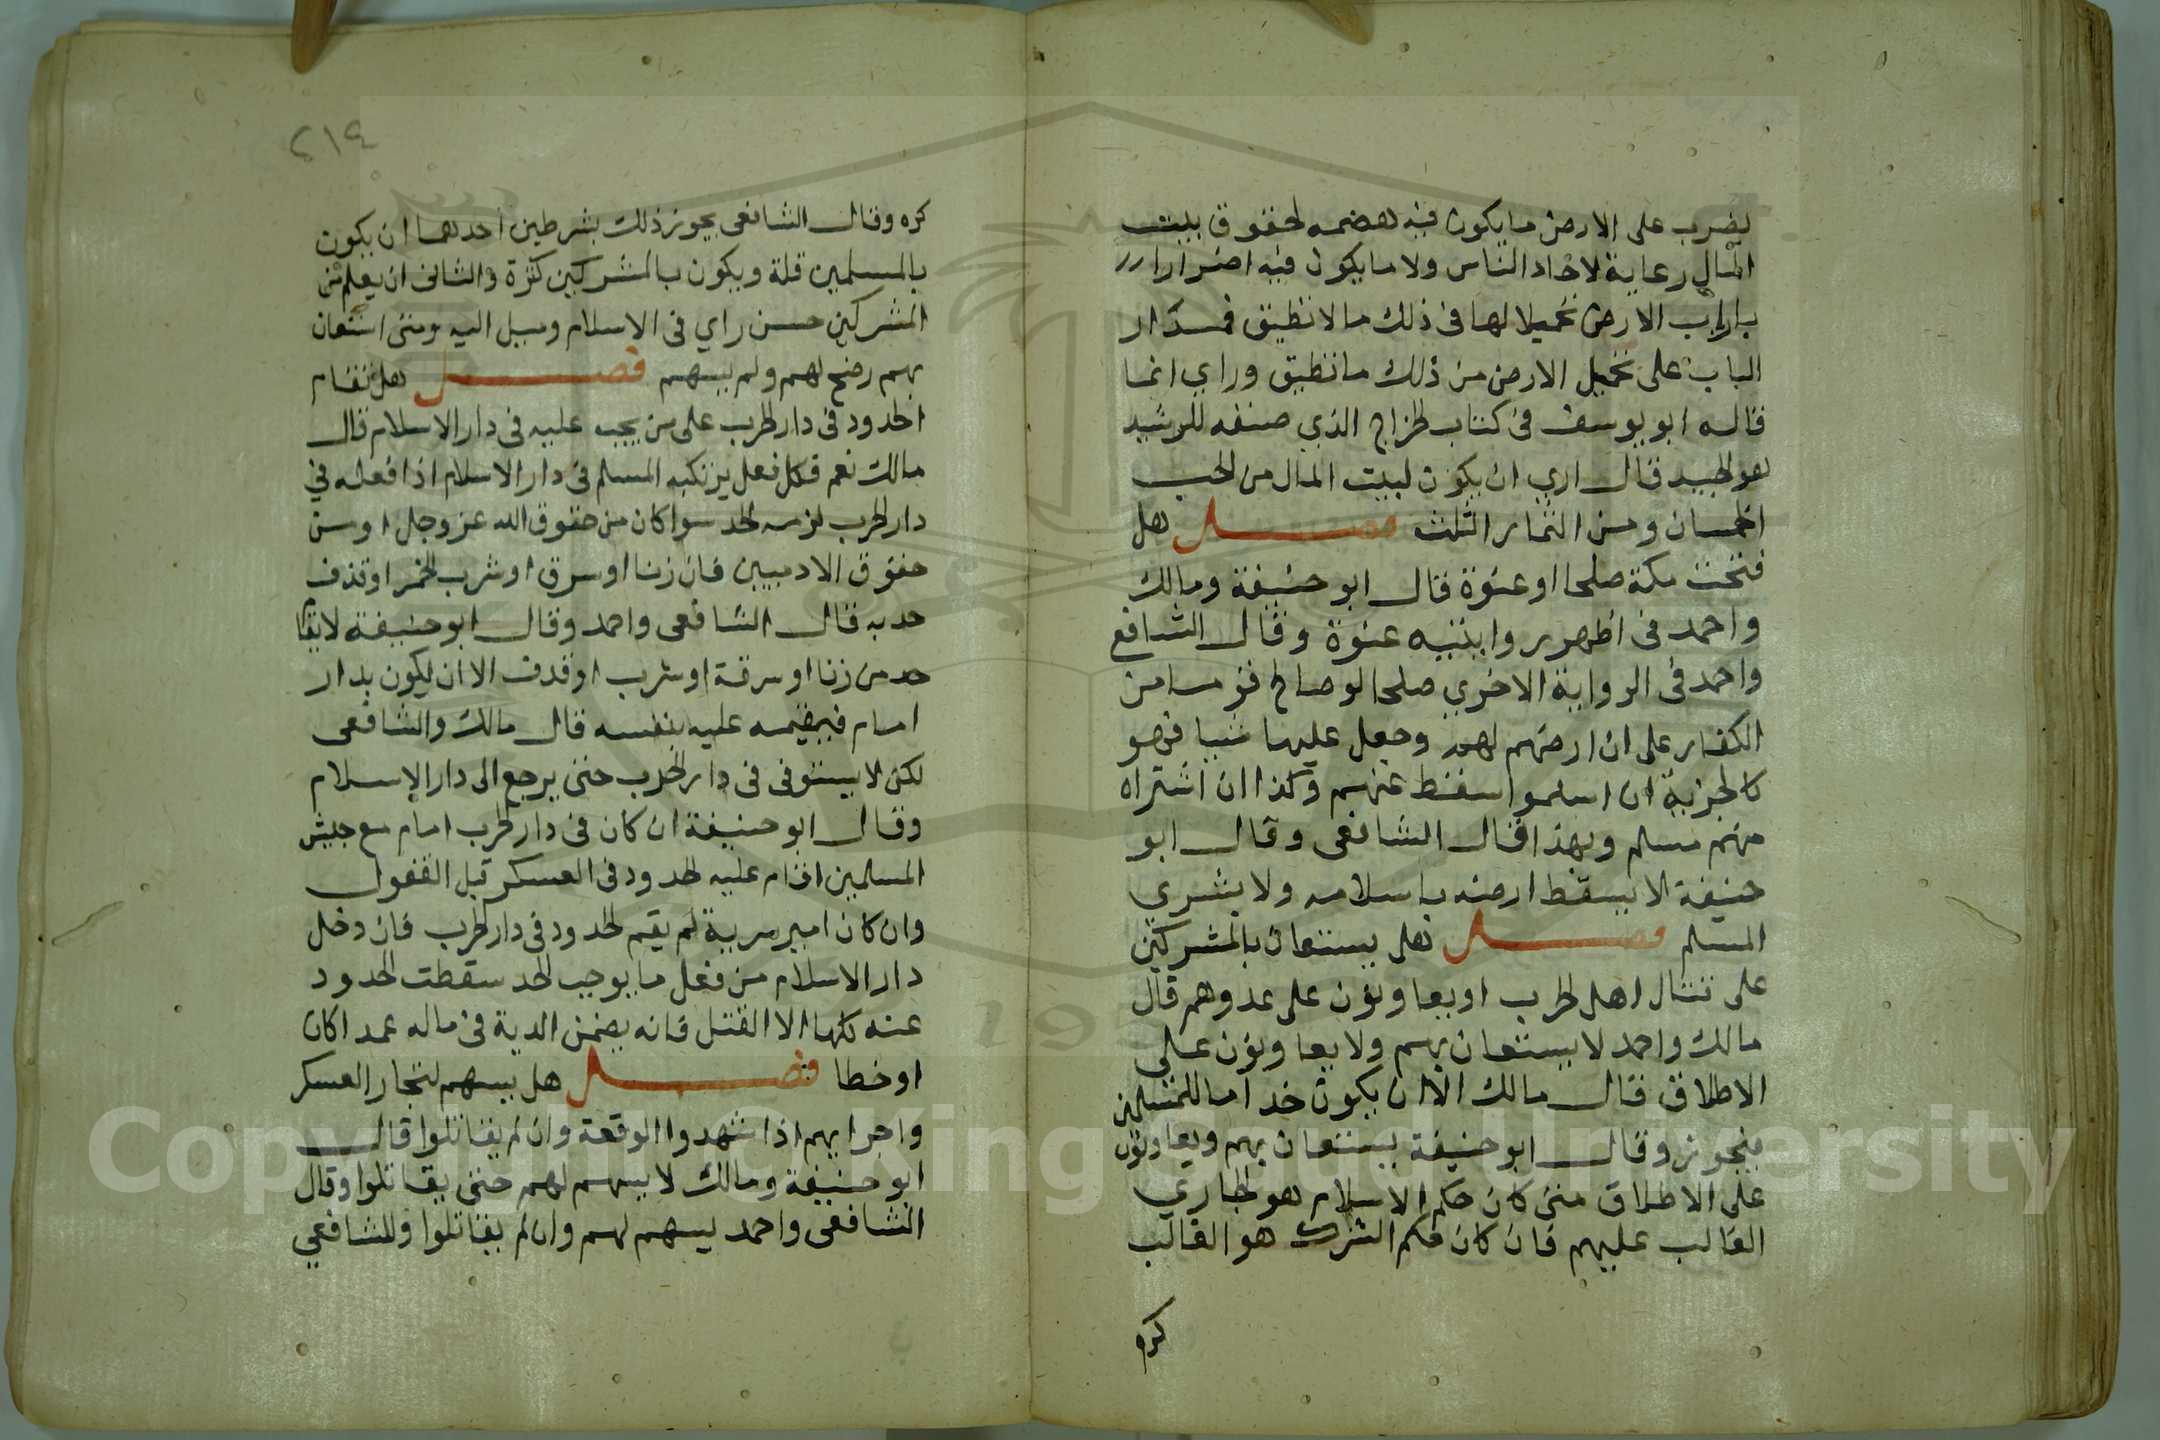 يضرب على الارض ما يكون فيه هضمه لحقوق بيت
المال رعاية لاحاد الناس ولا ما يكون فيه اضرارا
بارباب الارض تحميلا لها في ذلك ما لا تطيق فمدار
الباب على تحميل الارض من ذلك ما تطيق وراي انما
قاله ابو يوسف في كتاب الخراج الذي صنفه للرشيد
هو الجيد قال اري ان يكون لبيت المال من الحب
الخمسان ومن الثمار الثلث فصل هل
فتحت مكة صلحا او عنوة قال ابو حنيفة ومالك
واحمد في اظهر روايتيه عنوة وقال الشافعي
واحمد في الرواية الاخري صلحا لو صالح قوما من
الكفار على ان ارضهم لهم وجعل عليها شيا فهو
كالجزية ان اسلموا سقط عنهم وكذا ان اشتراه
منهم مسلم وبهذا قال الشافعي وقال ابو
حنيفة لا يسقط ارضه باسلامه ولا بشري
المسلم فصل هل يستعان بالمشركين
على قتال اهل الحرب او يعاونون على عدوهم قال
مالك واحمد لا يستعان بهم ولا يعاونون على
الاطلاق قال مالك الا ان يكون خداما للمسلمين
فيجوز وقال ابو حنيفة يستعان بهم ويعاونون
على الاطلاق متى كان حكم الاسلام هو الجاري
الغالب عليهم فان كان حكم الشرك هو الغالب
كره
٢١٤
كره وقال الشافعي يجوز ذلك بشرطين احدهما ان يكون
بالمسلمين قلة ويكون بالمشركين كثرة والثاني ان يعلم من
المشركين حسن راي في الاسلام وميل اليه ومتى استعان
بهم رضخ لهم ولم يسهم فصل هل تقام
الحدود في دار الحرب على من يجب عليه في دار الاسلام قال
مالك نعم فكل فعل يرتكبه المسلم في دار الاسلام اذا فعله في
دار الحرب لزمه الحد سوا كان من حقوق الله عز وجل او من
حقوق الادميين فان زنا او سرق او شرب الخمر او قذف
حد به قال الشافعي واحمد وقال ابو حنيفة لا يقام
حد من زنا او سرقة او شرب او قذف الا ان يكون بدار
امام فيقيمه عليه بنفسه قال مالك والشافعي
لكن لا يستوفى في دار الحرب حتى يرجع الى دار الاسلام
وقال ابو حنيفة ان كان في دار الحرب امام مع جيش
المسلمين اقام عليه الحدود في العسكر قبل القفول
وان كان امير سرية لم يقم الحدود في دار الحرب فان دخل
دار الاسلام من فعل ما يوجب الحد سقطت الحدود
عنه كلها الا القتل فانه يضمن الدية في ماله عمدا كان
او خطا فصل هل يسهم لتجار العسكر
واجرايهم اذا شهدوا الوقعة وان لم يقاتلوا قال
ابو حنيفة ومالك لا يسهم لهم حتى يقاتلوا وقال
الشافعي واحمد يسهم لهم وان لم يقاتلوا وللشافعي
Copyright © King Saud University